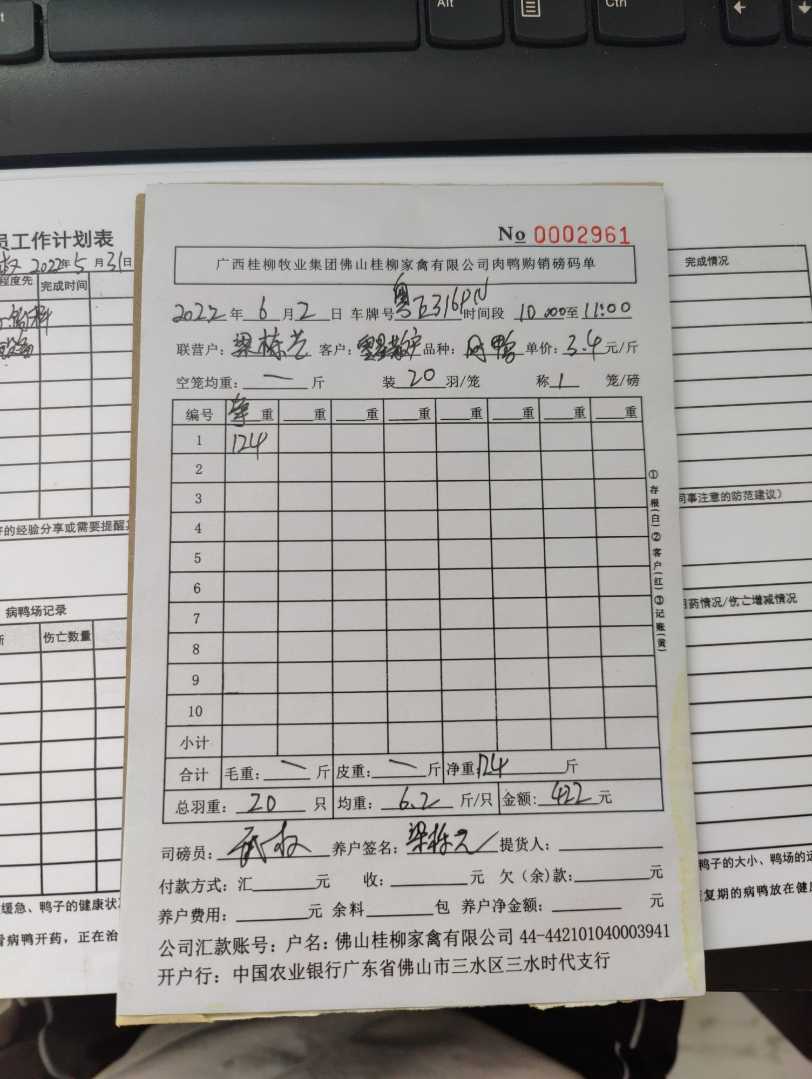 Alt
Ctrl
No 0002961
广西桂柳牧业集团佛山桂柳家禽有限公司肉鸭购销磅码单
2022年6月2日 车牌号粤 时间段 10:00至11:00
联营户: 梁栋 客户: 品种: 肉鸭 单价: 3.4元/斤
空笼均重: 一 斤 装20羽/笼 称1 笼/磅
编号 净重 重 重 重 重 重 重 重
1 124
2
3
4
5
6
7
8
9
10
小计
合计 毛重: 一 斤 皮重: 一 斤 净重 124 斤
总羽重: 20 只 均重: 6.2 斤/只 金额: 422 元
司磅员: 养户签名: 梁栋 提货人:
付款方式: 汇 元 收: 元 欠(余)款: 元
养户费用: 元 余料 包 养户净金额: 元
公司汇款账号: 户名: 佛山桂柳家禽有限公司 44-442101040003941
开户行: 中国农业银行广东省佛山市三水区三水时代支行
①存根(白)②客户(红)③记账(黄)
员工作计划表
2022年5月31日
程度先 完成时间
好的经验分享或需要提醒
病鸭场记录
伤亡数量
缓急、鸭子的健康状
看病鸭开药,正在治
完成情况
同事注意的防范建议)
用药情况/伤亡增减情况
鸭子的大小、鸭场的远
复期的病鸭放在健